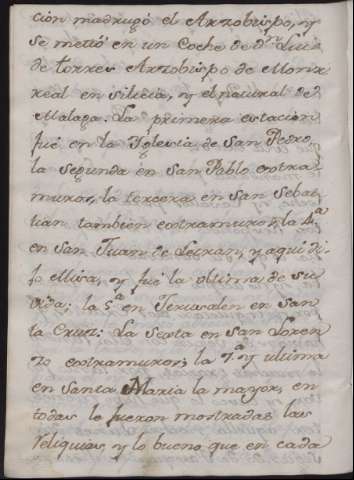 cion madrugó el Arzobispo, y
se metió en un Coche de Dn. Luis
de torres Arzobispo de Monrr
real en sicilia, y el natural de
Malaga. La primera estacion
fué en la Yglesia de San Pedro
la segunda en San Pablo extra
muros, la tercera en San Sebas
tian tambien extramuros, la 4.ª
en San Juan de Letran, y aqui di
jo Missa, y fué la ultima de su
vida; la 5.ª en Jerusalen en San
ta Cruz: La Sexta en San Loren
zo extramuros; la 7.ª y ultima
en Santa Maria la mayor, en
todas le fueron mostradas las
reliquias, y lo bueno que en cada